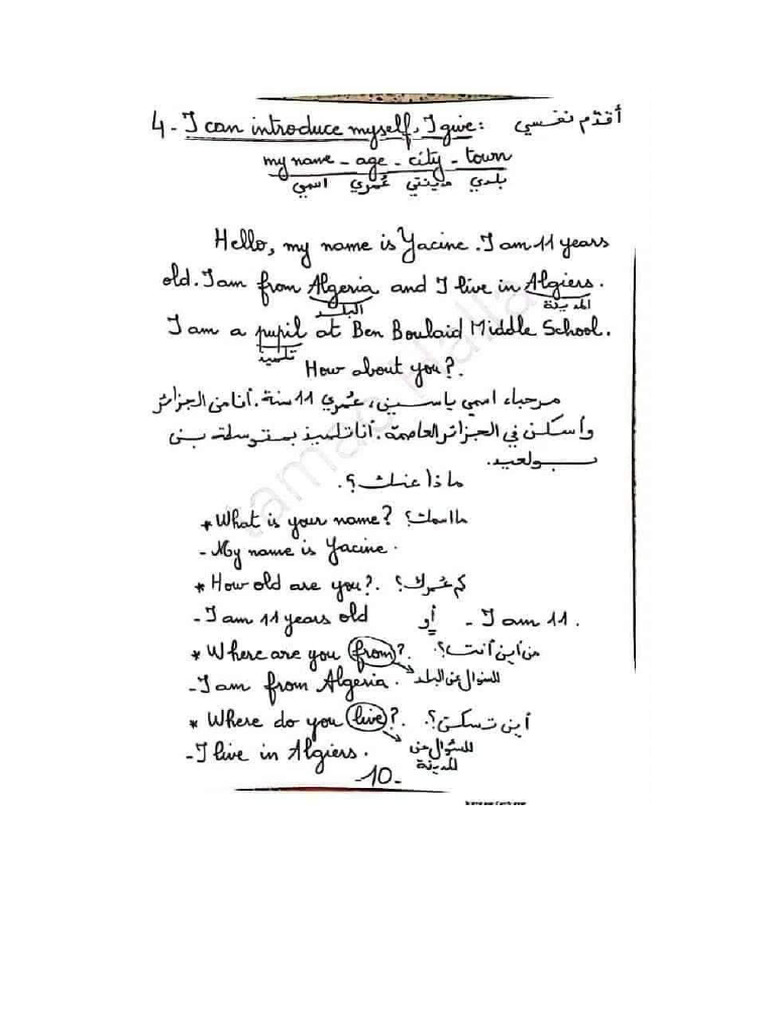 4 - I can introduce myself. I give: أقدّم نفسي
my name - age - city - town
اسمي عُمري مدينتي بلدي
Hello, my name is Yacine. I am 11 years
old. I am from Algeria and I live in Algiers.
البلد المدينة
I am a pupil at Ben Boulaid Middle School.
تلميذ
How about you?.
مرحباء اسمي ياسين، عُمري 11 سنة. أنا من الجزائر
وأسكن في الجزائر العاصمة. أنا تلميذ بمتوسطة بن
بولعيد.
ماذا عنك؟.
* What is your name? ما اسمك؟
- My name is Yacine.
* How old are you?. كم عمرك؟
- I am 11 years old أو - I am 11.
* Where are you from?. من أين أنت؟.
- I am from Algeria. للسؤال عن البلد
* Where do you live?. أين تسكن؟.
- I live in Algiers. للسؤال عن
المدينة
-10-